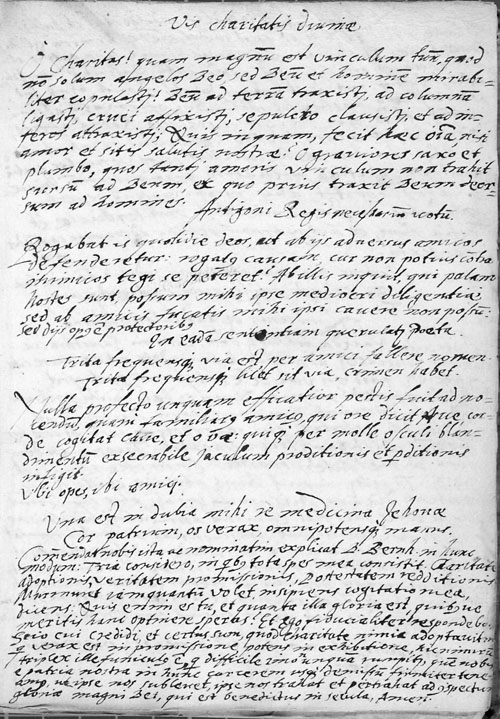 Vis charitatis diuinæ
O Charitas! quam magnũ est vinculum tuũ, quod
nõ solum angelos Deo, sed Deũ et hominẽ mirabi-
liter copulasti! Deũ ad terrã traxisti, ad columnã
ligasti, cruci affixisti, sepulcro clausisti, et ad in-
feros attraxisti; Quis inquam, fecit hæc oĩa, nisi
amor et sitis salutis nostræ? O grauiores saxo et
plumbo, quos tanti amoris vinculum non trahit
sursũ ad Deum, ex quo prius traxit Deum deor-
sum ad homines.
Antigoni Regis necessariũ votũ.
Rogabat is quotidie deos, ut ab ijs aduersus amicos
defenderetur: rogatq causam, cur non potius cõtra
inimicos tegi se peteret? Ab illis inquit, qui palam
hostes sunt, possum mihi ipse mediocri diligentia,
sed ab amicis fucatis mihi ipsi cauere non possũ:
sed dijs opq e protectoribq
In eadẽ sententiam querulatq Poeta.
Trita frequensq via est per amici fallere nomen
Trita frequensq licet sit via, crimen habet.
Nulla profecto unquam efficatior pestis fuit ad no-
cendũ, quam familiaris amicq, qui ore dicit
de cogitat caue, et per molle osculi blan-
dimentũ execrabile jaculum proditionis et perditionis
infigit.
Vbi opes, ibi amici.
Vna est in dubia mihi re medicina Jehouæ
Cor patrium, os verax omnipotensq manus.
Comendat nobis ista ac nominatim explicat D. Bernh. in hunc
modum: Tria considero, in qbq tota spes mea consistit. Caritatẽ
adoptionis, Veritatem promissionis, Potestatem redditionis
Murmuret iam quantũ volet insipiens cogitatio mea,
dicens. Quis enim es tu, et quanta illa gloria est, quibusue
meritis hanc obtinere speras? Et Ego fiducialiter respondebo.
Scio cui credidi, et certus sum, quod charitate nimia adoptauit me
q verax est in promissione, potens in exhibitione, hic enim
triplex ille funiculq e, q difficile imo unqua rumpitq, quẽ nobis
e patria nostra in hunc carcerem usq demissũ firmiter tene-
amq, ut ipse nos subleuet, ipse nos trahat et pertrahat ad cõspectum
gloriæ magni Dei, qui est benedictus in secula, Amen.